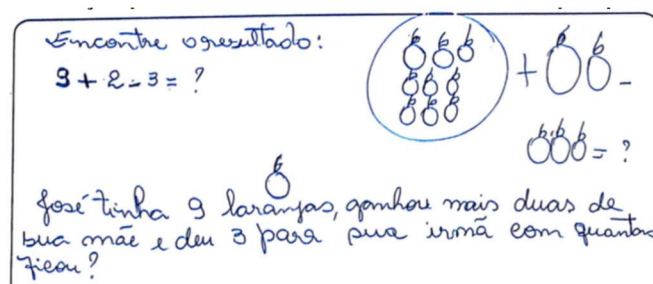 Encontre o resultado:
9 + 2 - 3 = ?
+ -
= ?
José tinha 9 laranjas, ganhou mais duas de
sua mãe e deu 3 para sua irmã com quantas
ficou?